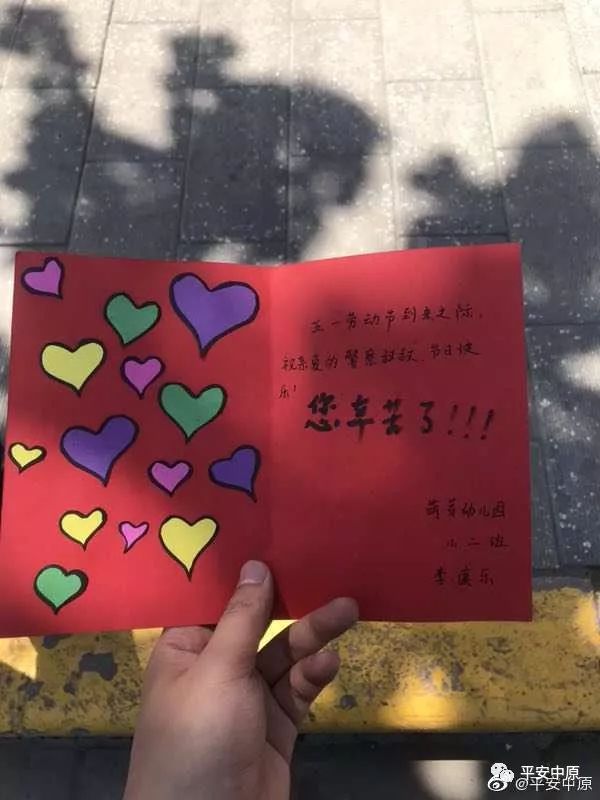 五一劳动节到来之际,
祝亲爱的警察叔叔,节日快
乐!
您辛苦了!!!
萌芽幼儿园
小二班
李奕乐
平安中原
@平安中原